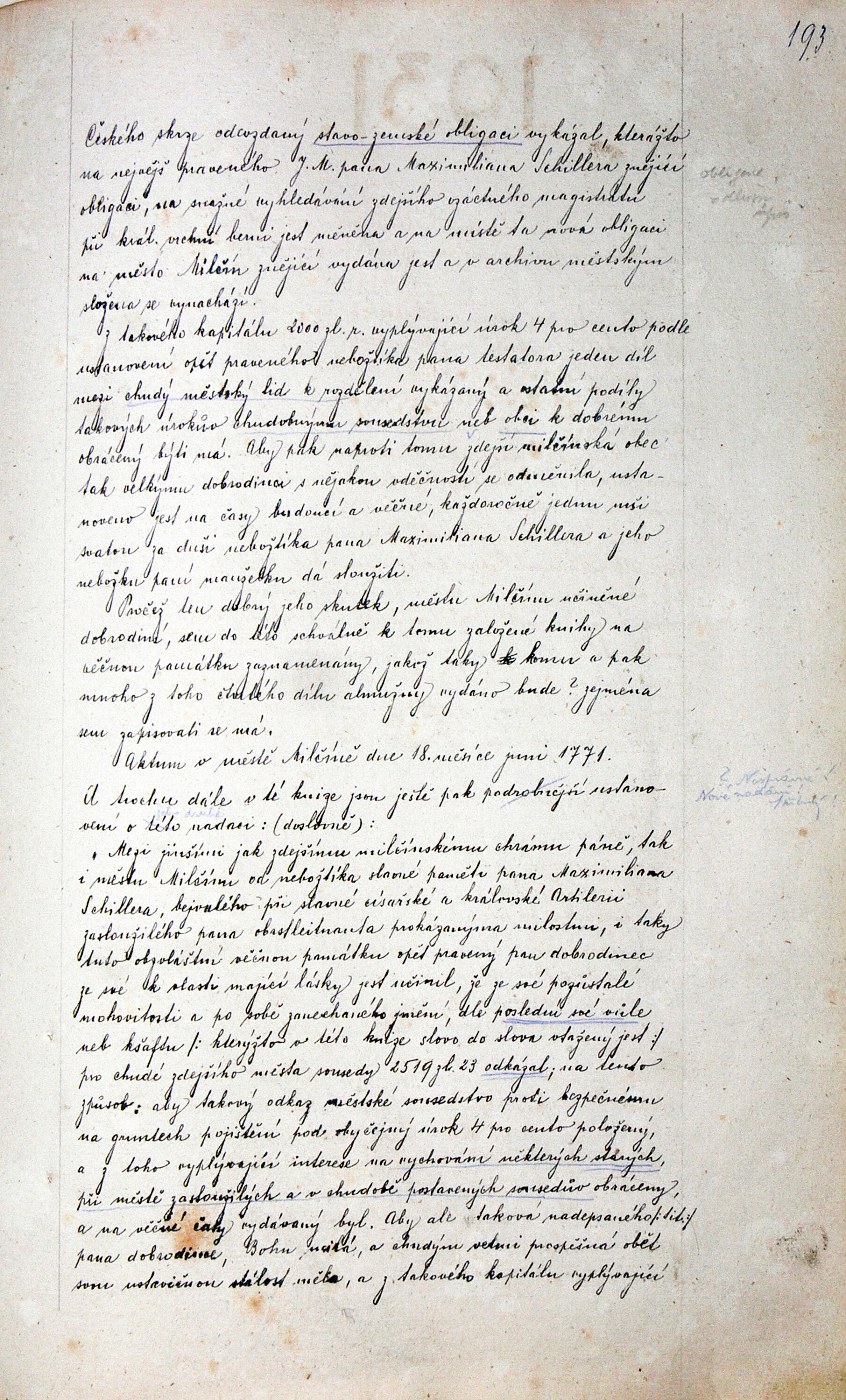 193.
Českého skrze odevzdaný stavo-zemské obligaci vykázal, kterážto
na nejvejš praveného J. M. pana Maximiliana Schillera znějící
obligací, na snažné vyhledávání zdejšího vzáctného magistrátu
při král. vrchní berni jest měněna a na místě ta nová obligací
na město Milčín znějící vydána jest a v archivu městským
složena se vynachází.
Z takového kapitálu 2000 zl. r. vyplývající úrok 4 pro cento podle
ustanovení opět praveného nebožtíka pana testatora jeden díl
mezi chudý městský lid k rozdělení vykázaný a ostatní podíly
takových úrokův chudobnýmu sousedstvu neb obci k dobrému
obrácený býti má. Aby pak naproti tomu zdejší milčínská obec
tak velkýmu dobrodinci s nějakou vděčností se odměnila, usta-
noveno jest na časy budoucí a věčné, každoročně jednu mši
svatou za duši nebožtíka pana Maximiliana Schillera a jeho
nebožku paní manželku dá sloužiti.
Pročež ten dobrý jeho skutek, městu Milčínu učiněné
dobrodiní, sem do této schválně k tomu založené knihy na
věčnou památku zaznamenány, jakož taky komu a pak
mnoho z toho čtvrtého dílu almužny vydáno bude? zejména
sem zapisovati se má.
Aktum v městě Milčíně dne 18. měsíce juni 1771.
A trochu dále v té knize jsou ještě pak podrobnější ustano-
vení o této nadaci: (doslovně):
„Mezi jinšími jak zdejšímu milčínskému chrámu páně, tak
i městu Milčínu od nebožtíka slavné paměti pana Maximiliana
Schillera, bejvalého při slavné císařské a královské Artilerii
zasloužilého pana obrstleitnanta prokázanýma milostmi, i taky
tuto obzvláštní věčnou památku opět pravený pan dobrodinec
ze své k vlasti mající lásky jest učinil, že ze své pozůstalé
mohovitosti a po sobě zanechaného jmění, dle poslední své vůle
neb kšaftu /: kterýžto v této knize slovo do slova vtažený jest :/
pro chudé zdejšího města sousedy 2519 zl. 23 odkázal; na tento
způsob: aby takový odkaz městské sousedstvo proti bezpečnému
na gruntech pojištění pod obyčejný úrok 4 pro cento položený,
a z toho vyplývající interese na vychování některých starých,
při městě zasloužilých a v chudobě postavených sousedův obráceny,
a na věčné časy vydávaný byl. Aby ale taková nadepsaného /: tit :/
pana dobrodince, Bohu milá, a chudým velmi prospěšná obět
svou ustavičnou stálost měla, a z takového kapitálu vyplývající
obligace
Nové nadání!